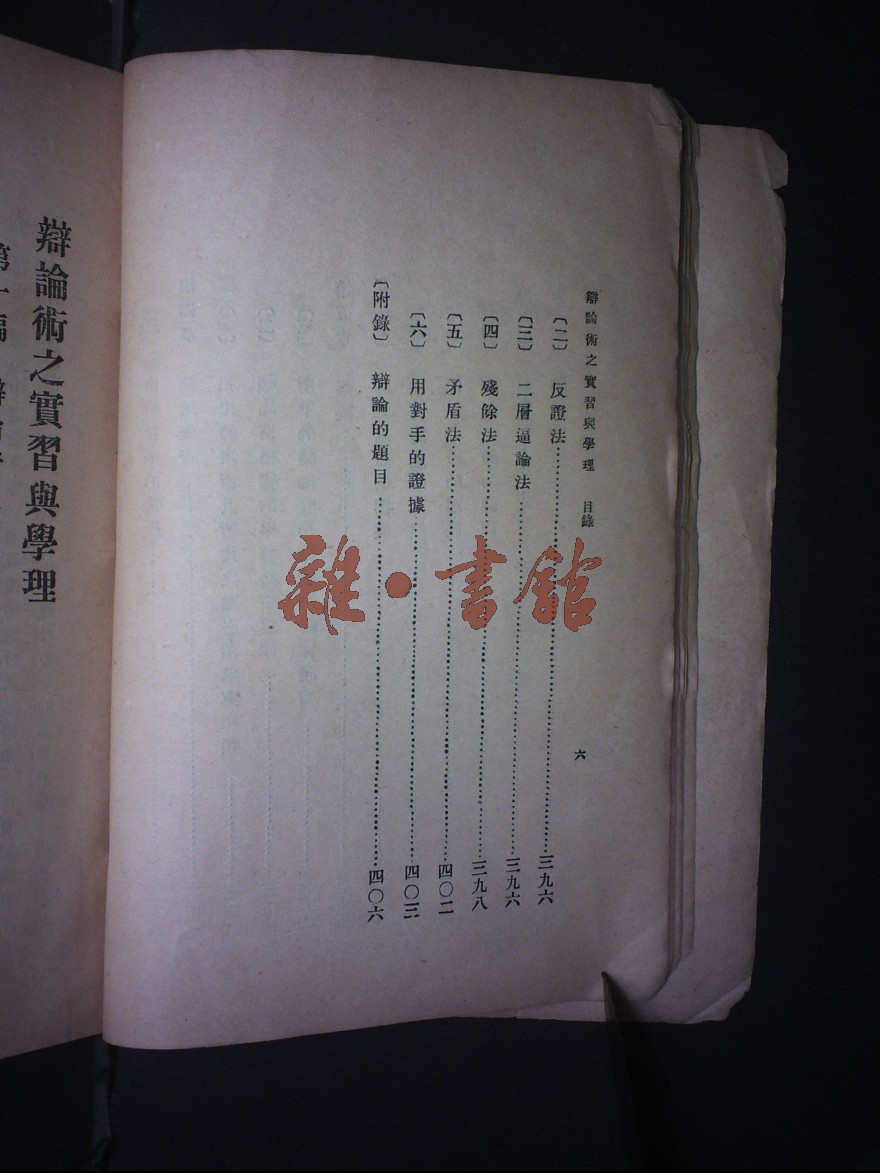 辯論術之實習與學理 目錄 六
〔二〕 反證法……三九六
〔三〕 二層逼論法……三九六
〔四〕 殘餘法……三九八
〔五〕 矛盾法……四〇二
〔六〕 用對手的證據……四〇三
〔附錄〕 辯論的題目……四〇六
辯論術之實習與學理
雜·書館